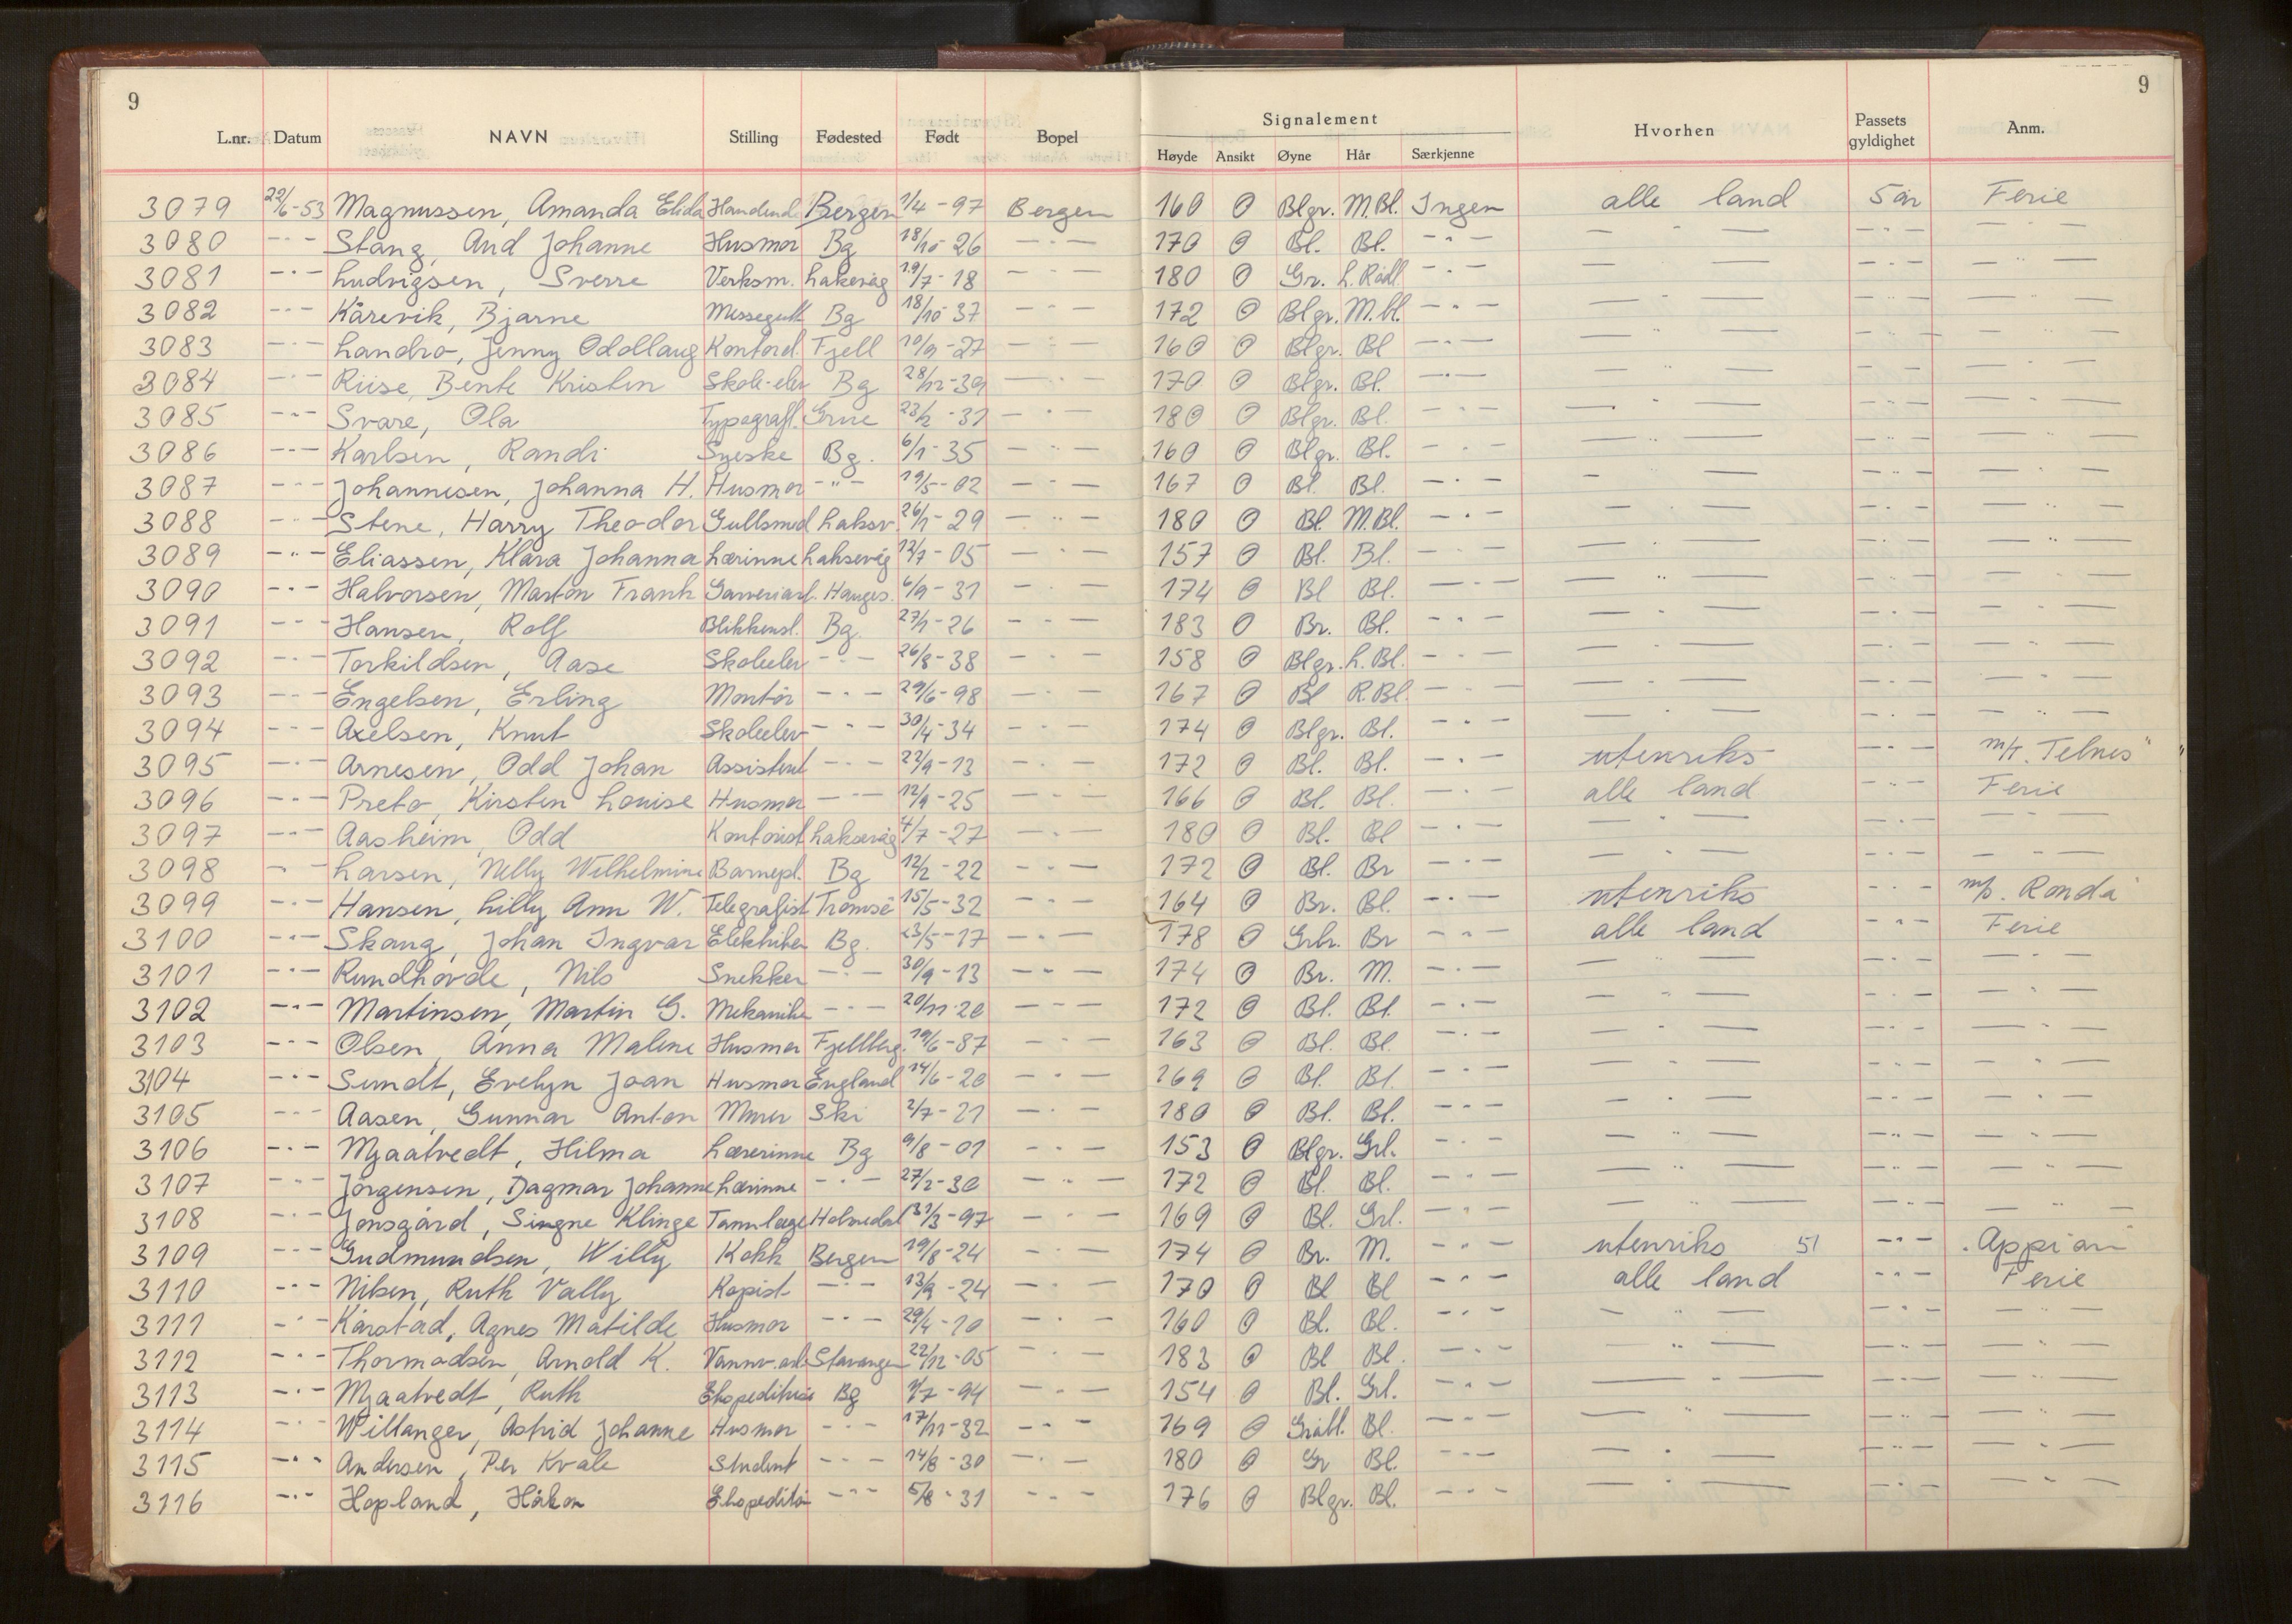 9 9
Signalement
L.nr. Datum NAVN Stilling Fødested Født Bopel Høyde Ansikt Øyne Hår Særkjenne Hvorhen Passets gyldighet Anm.
3079 22/6-53 Magnussen, Amanda Elida Handend. Bergen 1/4-97 Bergen 160 O Blgr. M.Bl. Ingen alle land 5 år Ferie
3080 -"- Stang, Aud Johanne Husmor Bg 18/10-26 -"- 170 O Bl. Bl. -"- -"- -"- -"-
3081 -"- Ludvigsen, Sverre Verksm. Laksevåg 19/7-18 -"- 180 O Gr. L.Rødl. -"- -"- -"- -"-
3082 -"- Kårevik, Bjarne Messegutt Bg 18/10-37 -"- 172 O Blgr. M.bl. -"- -"- -"- -"-
3083 -"- Landro, Jenny Odollaug Kontord. Fjell 10/9-27 -"- 160 O Blgr. Bl -"- -"- -"- -"-
3084 -"- Riise, Bente Kristin Skole-elev Bg 28/12-39 -"- 170 O Blgr. Bl. -"- -"- -"- -"-
3085 -"- Svare, Ola Typografl. Grue 23/2-31 -"- 180 O Blgr. Bl. -"- -"- -"- -"-
3086 -"- Karlsen, Randi Syeske Bg. 6/1-35 -"- 160 O Blgr. Bl. -"- -"- -"- -"-
3087 -"- Johannesen, Johanna H. Husmor -"- 19/5-02 -"- 167 O Bl. Bl. -"- -"- -"- -"-
3088 -"- Stene, Harry Theodor Gullsmed Laksv. 26/1-29 -"- 180 O Bl. M.Bl. -"- -"- -"- -"-
3089 -"- Eliassen, Klara Johanna Lærinne Laksevåg 12/7-05 -"- 157 O Bl. Bl. -"- -"- -"- -"-
3090 -"- Halvorsen, Martin Frank Garveriarb. Hauges. 6/9-31 -"- 174 O Bl Bl. -"- -"- -"- -"-
3091 -"- Hansen, Rolf Blikkensl. Bg. 27/1-26 -"- 183 O Br. Bl. -"- -"- -"- -"-
3092 -"- Torkildsen, Aase Skoleelev -"- 26/8-38 -"- 158 O Blgr. L.Bl. -"- -"- -"- -"-
3093 -"- Engelsen, Erling Montör -"- 29/6-98 -"- 167 O Bl R.Bl. -"- -"- -"- -"-
3094 -"- Axelsen, Knut Skoleelev -"- 30/4-34 -"- 174 O Blgr. Bl. -"- -"- -"- -"-
3095 -"- Arnesen, Odd Johan Assistent -"- 22/9-13 -"- 172 O Bl. Bl. -"- utenriks -"- m/t. Telnes"
3096 -"- Preto, Kirsten Louise Husmor -"- 12/9-25 -"- 166 O Bl. Bl. -"- alle land -"- Ferie
3097 -"- Aasheim, Odd Kontorist Laksevåg 4/7-27 -"- 180 O Bl. Bl -"- -"- -"- -"-
3098 -"- Larsen, Nelly Wilhelmine Barnepl. Bg 12/2-22 -"- 172 O Bl. Br -"- -"- -"- -"-
3099 -"- Hansen, Lilly Ann W. Telegrafist Tromsö 15/5-32 -"- 164 O Br. Bl. -"- utenriks -"- m/s. Ronda"
3100 -"- Skaug, Johan Ingvar Elektriker Bg. 23/5-17 -"- 178 O Grbr. Br -"- alle land -"- Ferie
3101 -"- Rundhovde, Nils Snekker -"- 30/9-13 -"- 174 O Br. M. -"- -"- -"- -"-
3102 -"- Martinsen, Martin G. Mekaniker -"- 20/11-20 -"- 172 O Bl. Bl. -"- -"- -"- -"-
3103 -"- Olsen, Anna Malene Husmor Fjellberg. 19/6-87 -"- 163 O Bl. Bl. -"- -"- -"- -"-
3104 -"- Sundt, Evelyn Joan Husmor England 14/6-20 -"- 169 O Bl. Bl. -"- -"- -"- -"-
3105 -"- Aasen, Gunnar Anton Murer Ski 2/7-21 -"- 180 O Bl. Bl. -"- -"- -"- -"-
3106 -"- Mjaatvedt, Hilma Lærerinne Bg 9/8-01 -"- 153 O Blgr. Grl. -"- -"- -"- -"-
3107 -"- Jörgensen, Dagmar Johanne Lærinne -"- 27/2-30 -"- 172 O Bl. Bl. -"- -"- -"- -"-
3108 -"- Jonsgård, Singne Klinge Tannlæge Holmedal 31/3-97 -"- 169 O Bl. Grl. -"- -"- -"- -"-
3109 -"- Gudmundsen, Willy Kokk Bergen 19/8-24 -"- 174 O Br. M. -"- utenriks 51 -"- Appian
3110 -"- Nilsen, Ruth Vally Kopist -"- 13/9-24 -"- 170 O Bl Bl -"- alle land -"- Ferie
3111 -"- Kårstad, Agnes Matilde Husmor -"- 29/4-10 -"- 160 O Bl. Bl. -"- -"- -"- -"-
3112 -"- Thormodsen, Arnold K. Vannv.arb. Stavanger 22/12-05 -"- 183 O Bl Bl. -"- -"- -"- -"-
3113 -"- Mjaatvedt, Ruth Ekspeditrise Bg 9/7-94 -"- 154 O Bl. Grl. -"- -"- -"- -"-
3114 -"- Willanger, Astrid Johanne Husmor -"- 17/11-32 -"- 169 O Gråbl. Bl. -"- -"- -"- -"-
3115 -"- Andersen, Per Kvale Student -"- 14/8-30 -"- 180 O Gr Bl. -"- -"- -"- -"-
3116 -"- Hopland, Håkon Ekspeditör -"- 5/8-31 -"- 176 O Blgr. Bl. -"- -"- -"- -"-